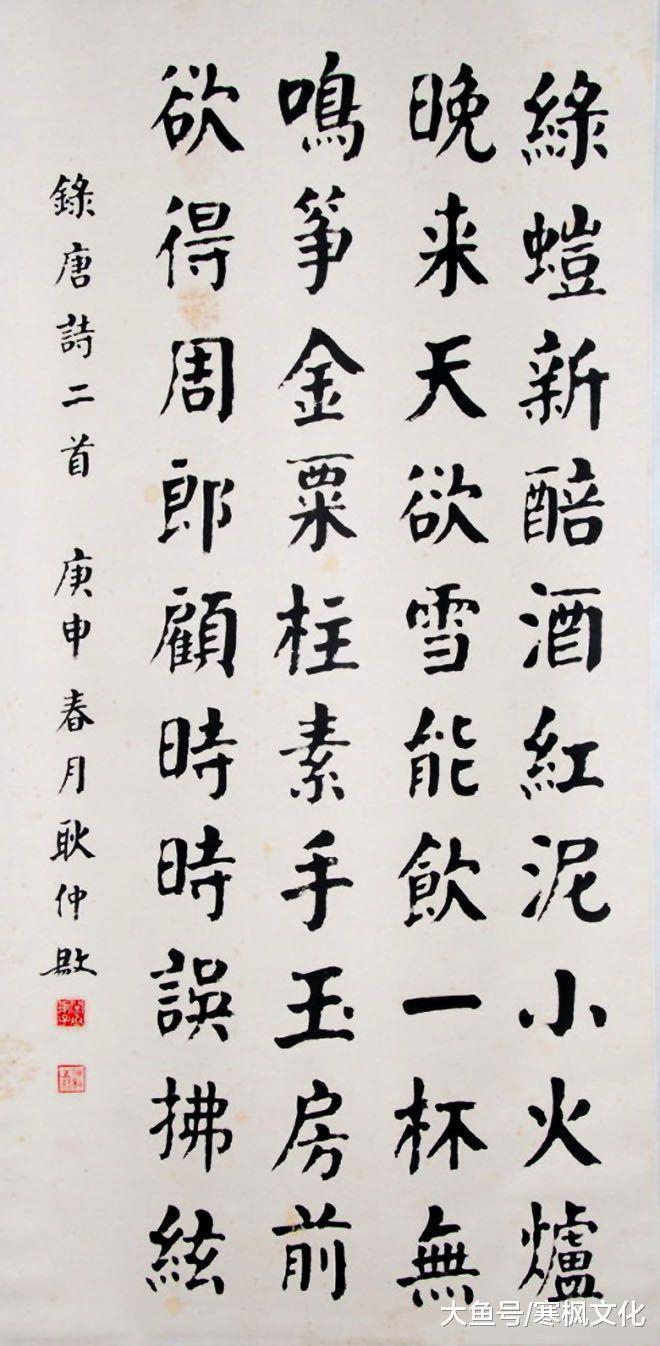 綠螘新醅酒紅泥小火爐
晚来天欲雪能飲一杯無
鳴筝金粟柱素手玉房前
欲得周郎顧時時誤拂絃
錄唐詩二首 庚申春月耿仲敭
大鱼号/寒枫文化